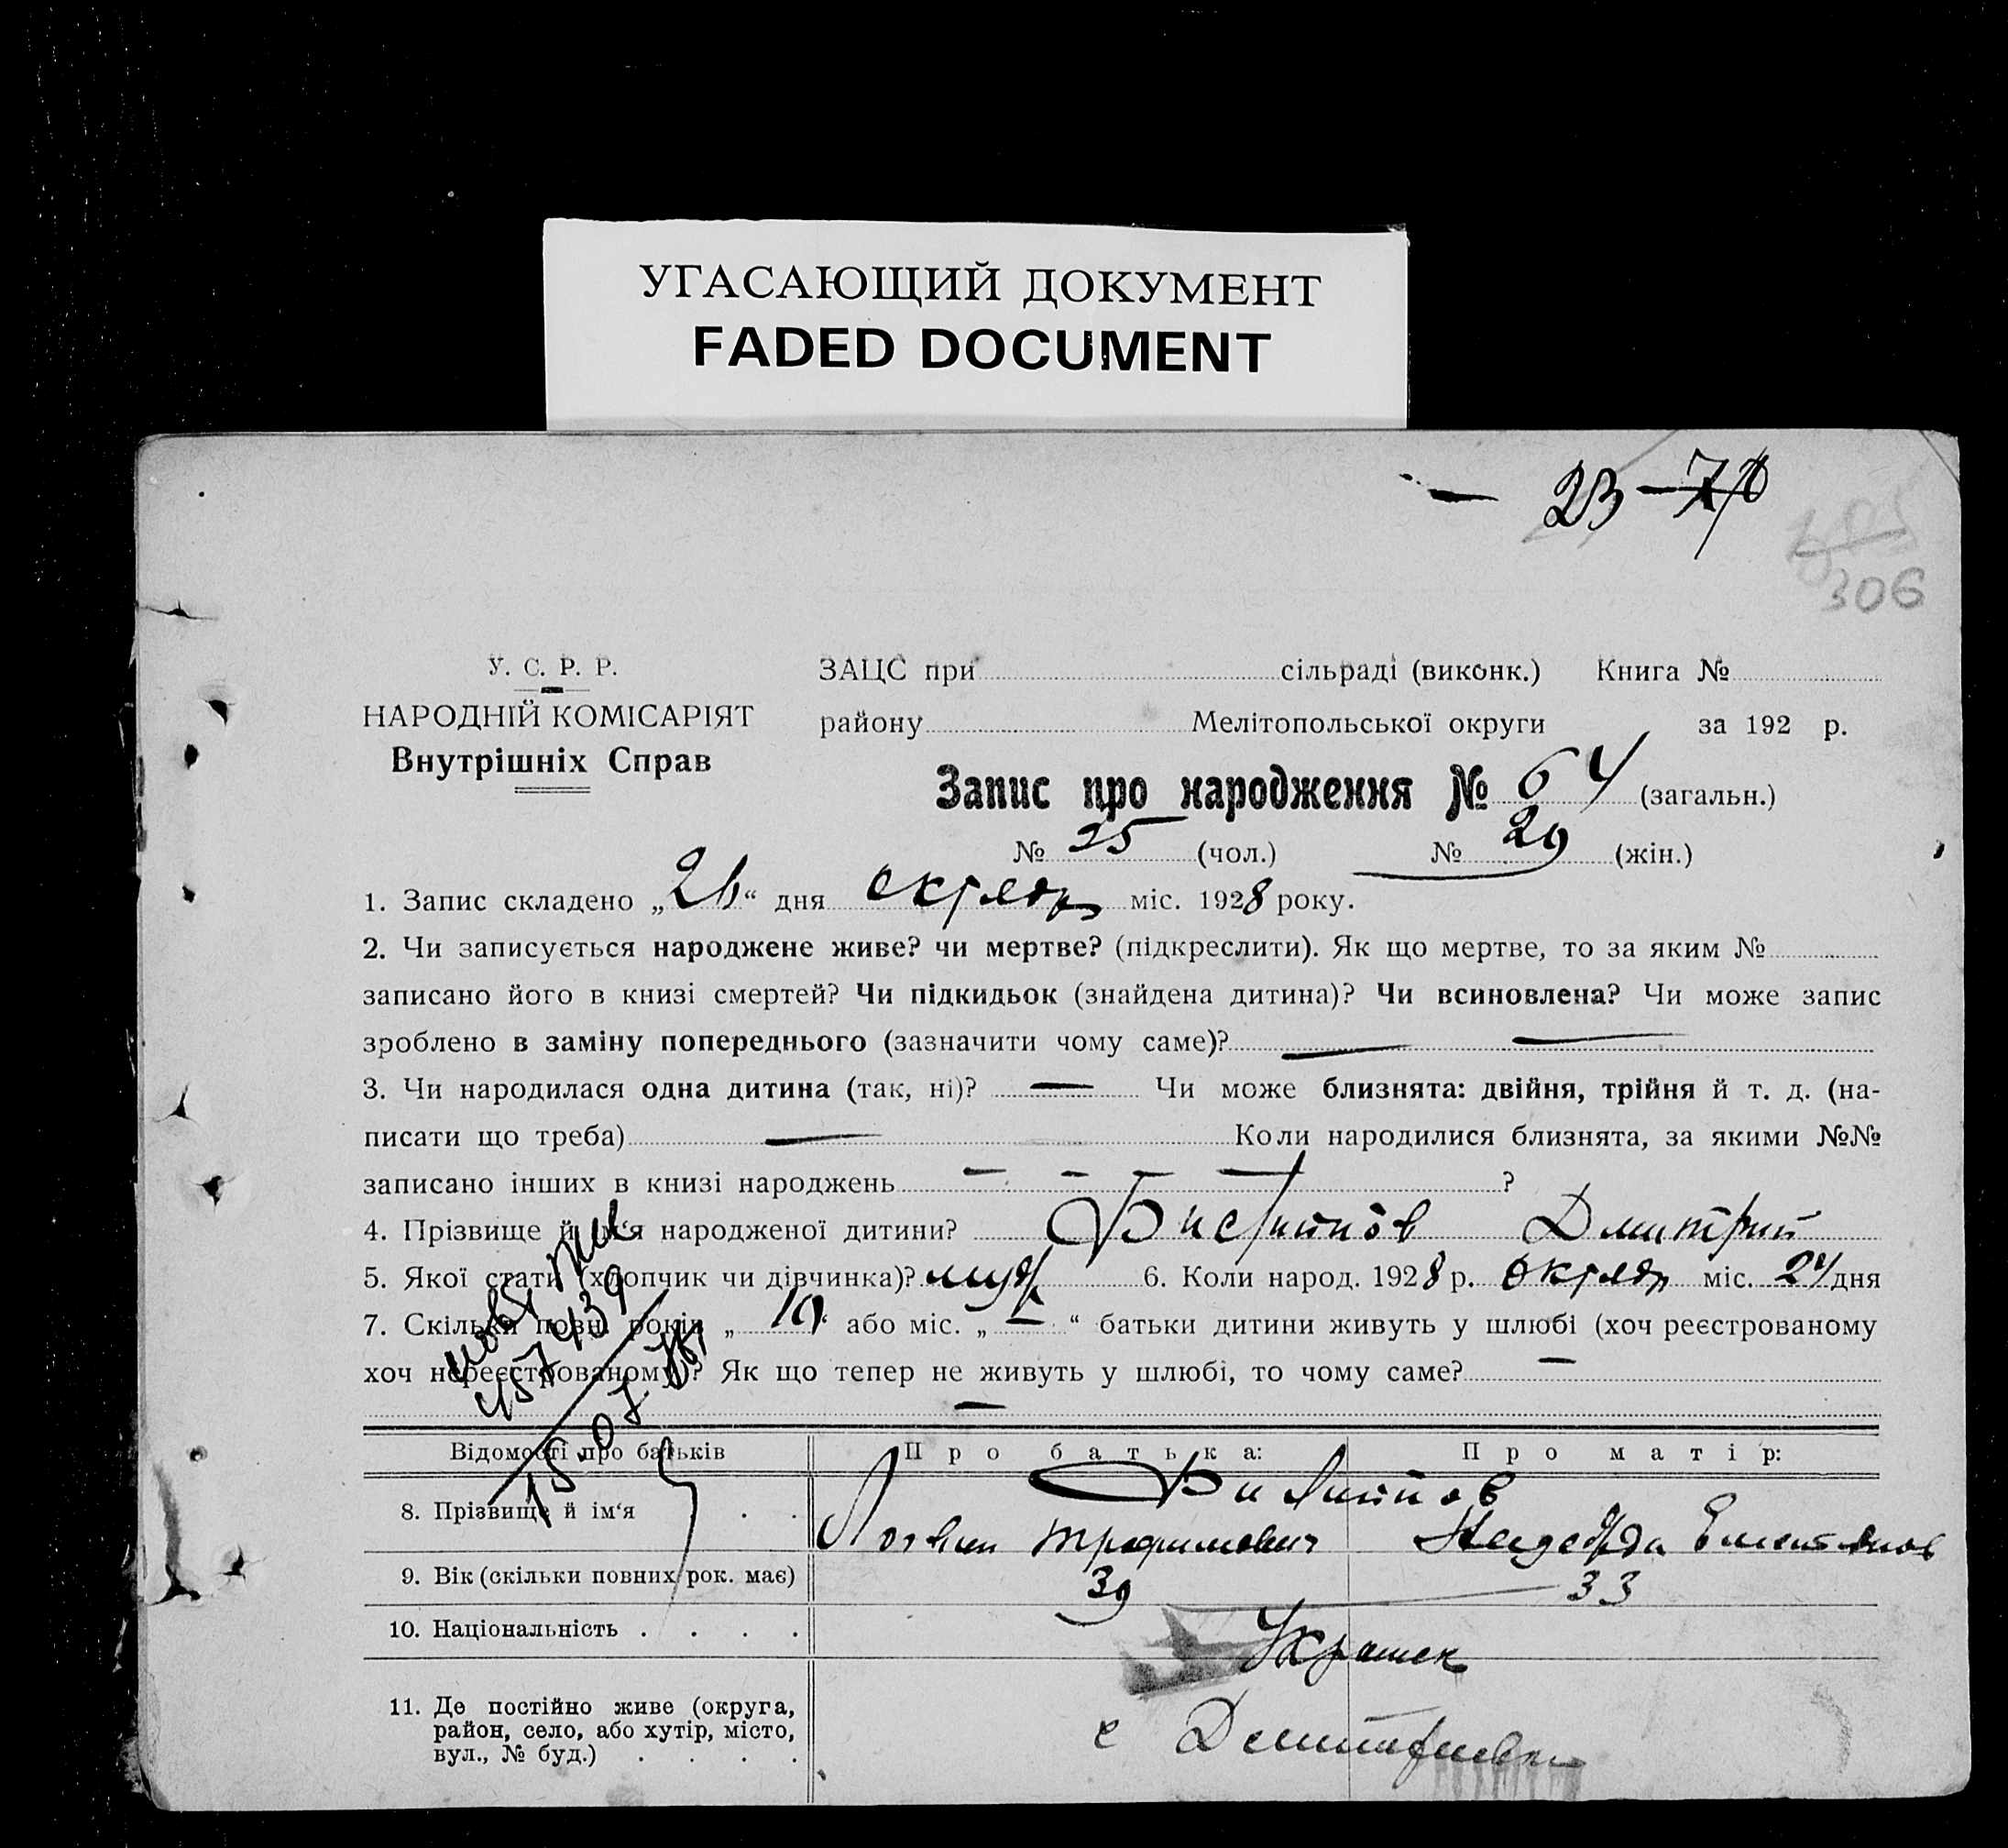 УГАСАЮЩИЙ ДОКУМЕНТ
FADED DOCUMENT
— 23 — 70
306
У. С. Р. Р.
НАРОДНІЙ КОМІСАРІЯТ
Внутрішніх Справ
ЗАЦС при сільраді (виконк.) Книга №
району Мелітопольської округи за 192 р.
Запис про народження № 64 (загальн.)
№ 25 (чол.) № 29 (жін.)
1. Запис складено „26“ дня октяб міс. 1928 року.
2. Чи записується народжене живе? чи мертве? (підкреслити). Як що мертве, то за яким №
записано його в книзі смертей? Чи підкидьок (знайдена дитина)? Чи всиновлена? Чи може запис
зроблено в заміну попереднього (зазначити чому саме)? — —
3. Чи народилася одна дитина (так, ні)? — Чи може близнята: двійня, трійня й т. д. (на-
писати що треба) — Коли народилися близнята, за якими №№
записано інших в книзі народжень — — — ?
4. Прізвище й ім‘я народженої дитини? Дмитрий
5. Якої статі (хлопчик чи дівчинка)? муж 6. Коли народ. 1928 р. октяб міс. 24 дня
7. Скільки повн. років „ 10 “ або міс. „ — “ батьки дитини живуть у шлюбі (хоч реєстрованому
хоч нереєстрованому)? Як що тепер не живуть у шлюбі, то чому саме? —
—
Відомості про батьків Про батька: Про матір:
8. Прізвище й ім‘я . .
Трофимович
9. Вік (скільки повних рок. має) 39 33
10. Національність . . . . Украинск
11. Де постійно живе (округа,
район, село, або хутір, місто,
вул., № буд.) . . . .
с Дмитриевки